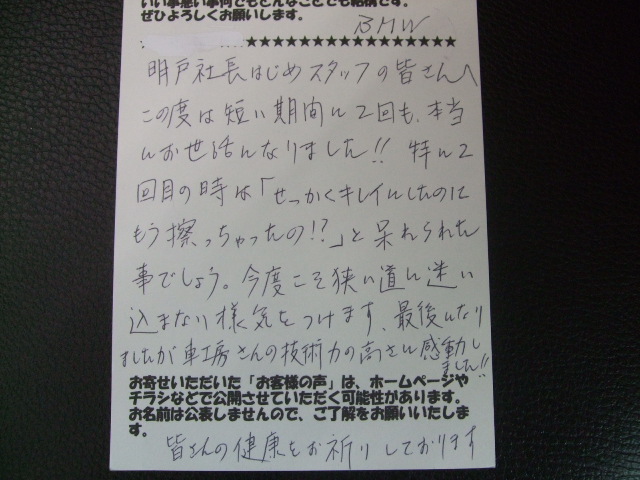 いい事悪い事何でもどんなことでも結構です。
ぜひよろしくお願いします。
BMW
★★★★★★★★★★★★★★★★★★
明戸社長はじめスタッフの皆さんへ
この度は短い期間に2回も、本当
にお世話になりました!! 特に2
回目の時は「せっかくキレイにしたのに
もう擦っちゃったの!?」と呆れられた
事でしょう。今度こそ狭い道に迷い
込まない様気をつけます、最後になり
ましたが車工房さんの技術力の高さに感動し
ました!!
お寄せいただいた「お客様の声」は、ホームページや
チラシなどで公開させていただく可能性があります。
お名前は公表しませんので、ご了解をお願いいたしま
す。
皆さんの健康をお祈りしております